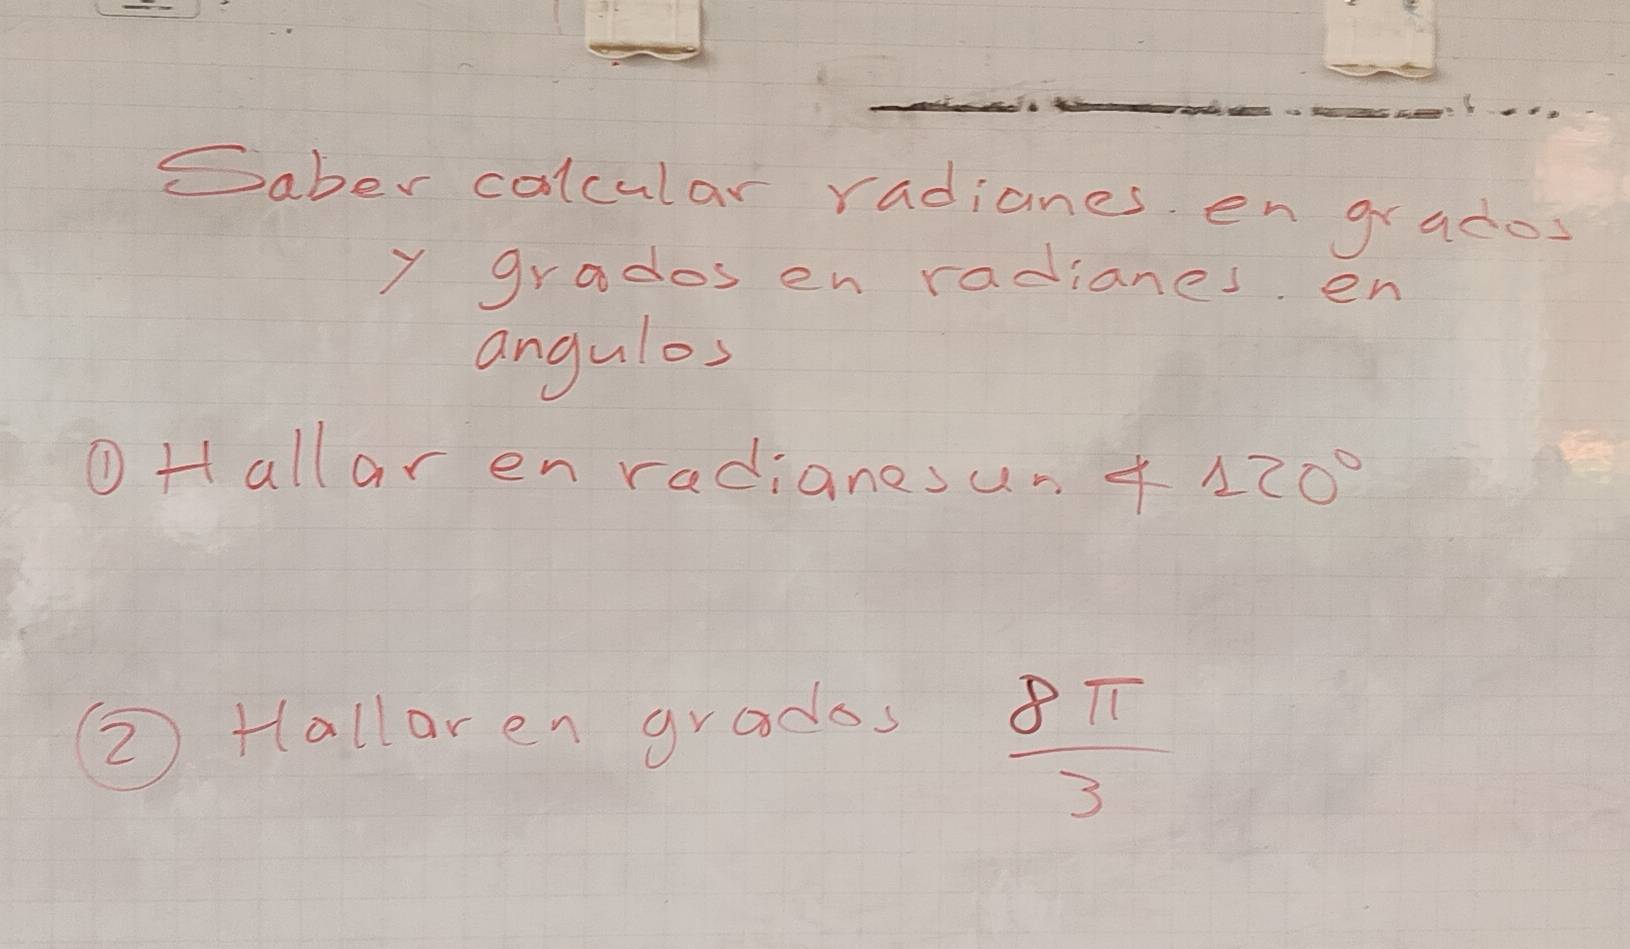 Saber calcular radianes. en grados
y grados en radianes. en
angulos
① Hallar en radianes un ∢ 120°
② Hallar en grados 8π/3